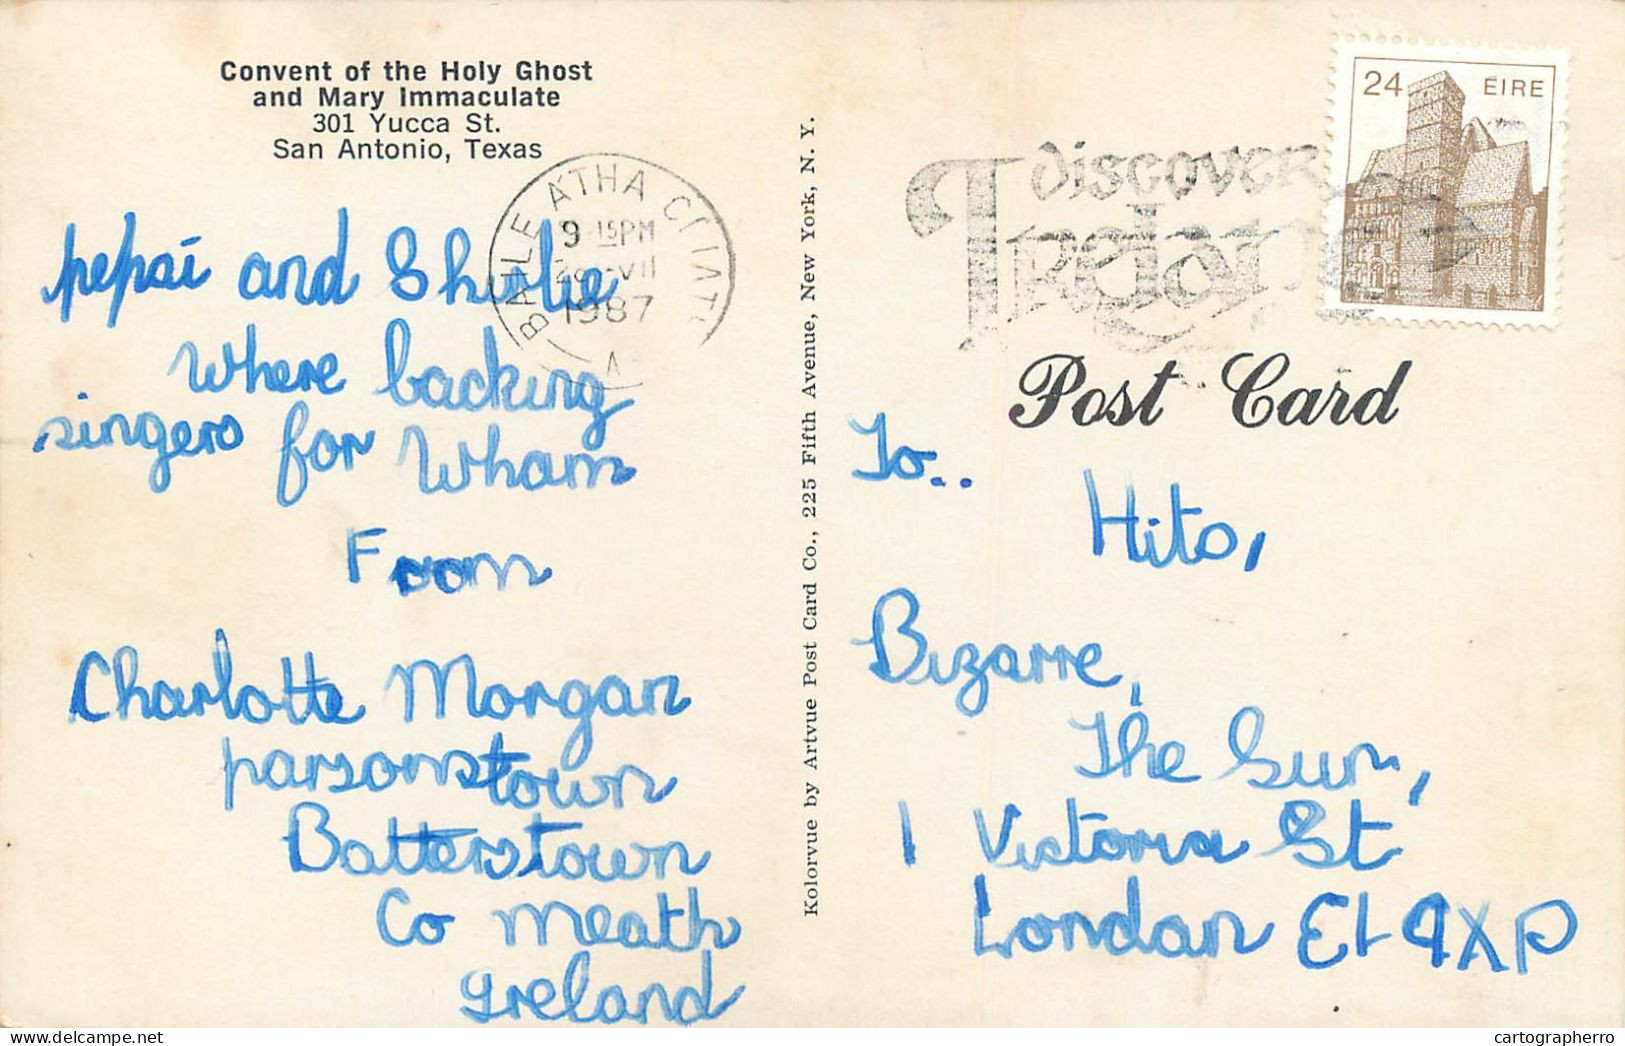 Convent of the Holy Ghost
and Mary Immaculate
301 Yucca St.
San Antonio, Texas
BAILE ÁTHA CLIATH
9 15PM
VII
1987
A
pepsi and Shirlie
where backing
singers for Wham
From
Charlotte Morgan
parsonstown
Batterstown
Co Meath
Ireland
Kolorvue by Artvue Post Card Co., 225 Fifth Avenue, New York, N. Y.
discover
Ireland
24 ÉIRE
Post Card
To..
Hito,
Bizarre,
The Sun,
1 Victoria St
London E1 9XP
cartographerro